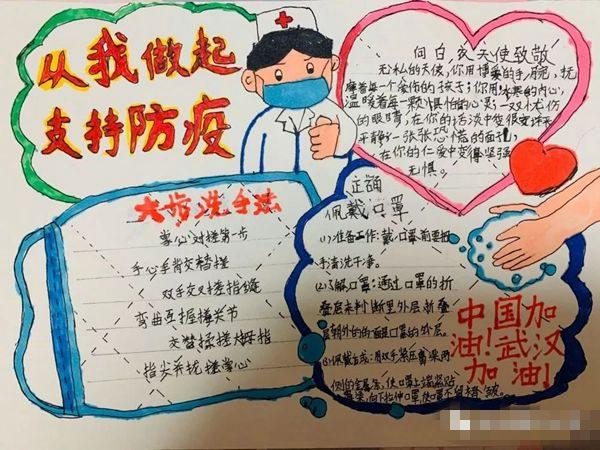 从我做起
支持防疫
向白衣天使致敬
无私的天使,你用博爱的手腕,抚
摩着每一个受伤的孩子;你用
温暖着每一颗惧怕的心灵;一双忧伤
的眼睛,在你的话淡中变得
平静;一张张恐慌的面孔,
在你的仁爱中变得坚强
无惧。
六步洗手法
掌心对搓第一步
手心手背交替搓
双手交叉搓指缝
弯曲互握搓关节
交替揉搓大拇指
指尖并拢搓掌心
正确
佩戴口罩
(1)准备工作:戴口罩前要把
手清洗干净。
(2)了解口罩:通过口罩的折
叠层来判断里外层,折叠
层朝外的面是口罩的外层。
(3)佩戴方式:用双手紧压鼻梁两
侧的金属条,使口罩上端紧贴
鼻梁,向下拉伸口罩,使口罩不留
中国加
油!武汉
加油!